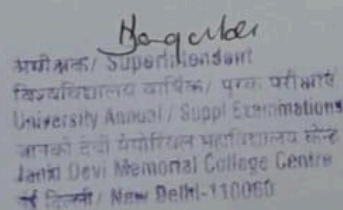 अधीक्षक/ Superintendent
विश्वविद्यालय वार्षिक/ पूरक परीक्षाएं
University Annual / Suppl Examinations
जानकी देवी मेमोरियल महाविद्यालय केन्द्र
Janki Devi Memorial College Centre
नई दिल्ली/ New Delhi-110060